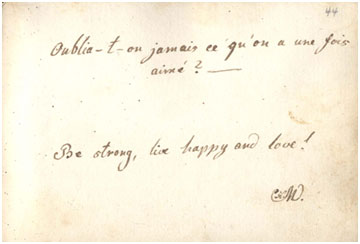 44
Oublia-t-on jamais ce qu'on a une fois
aimé? —
Be strong, live happy and love!